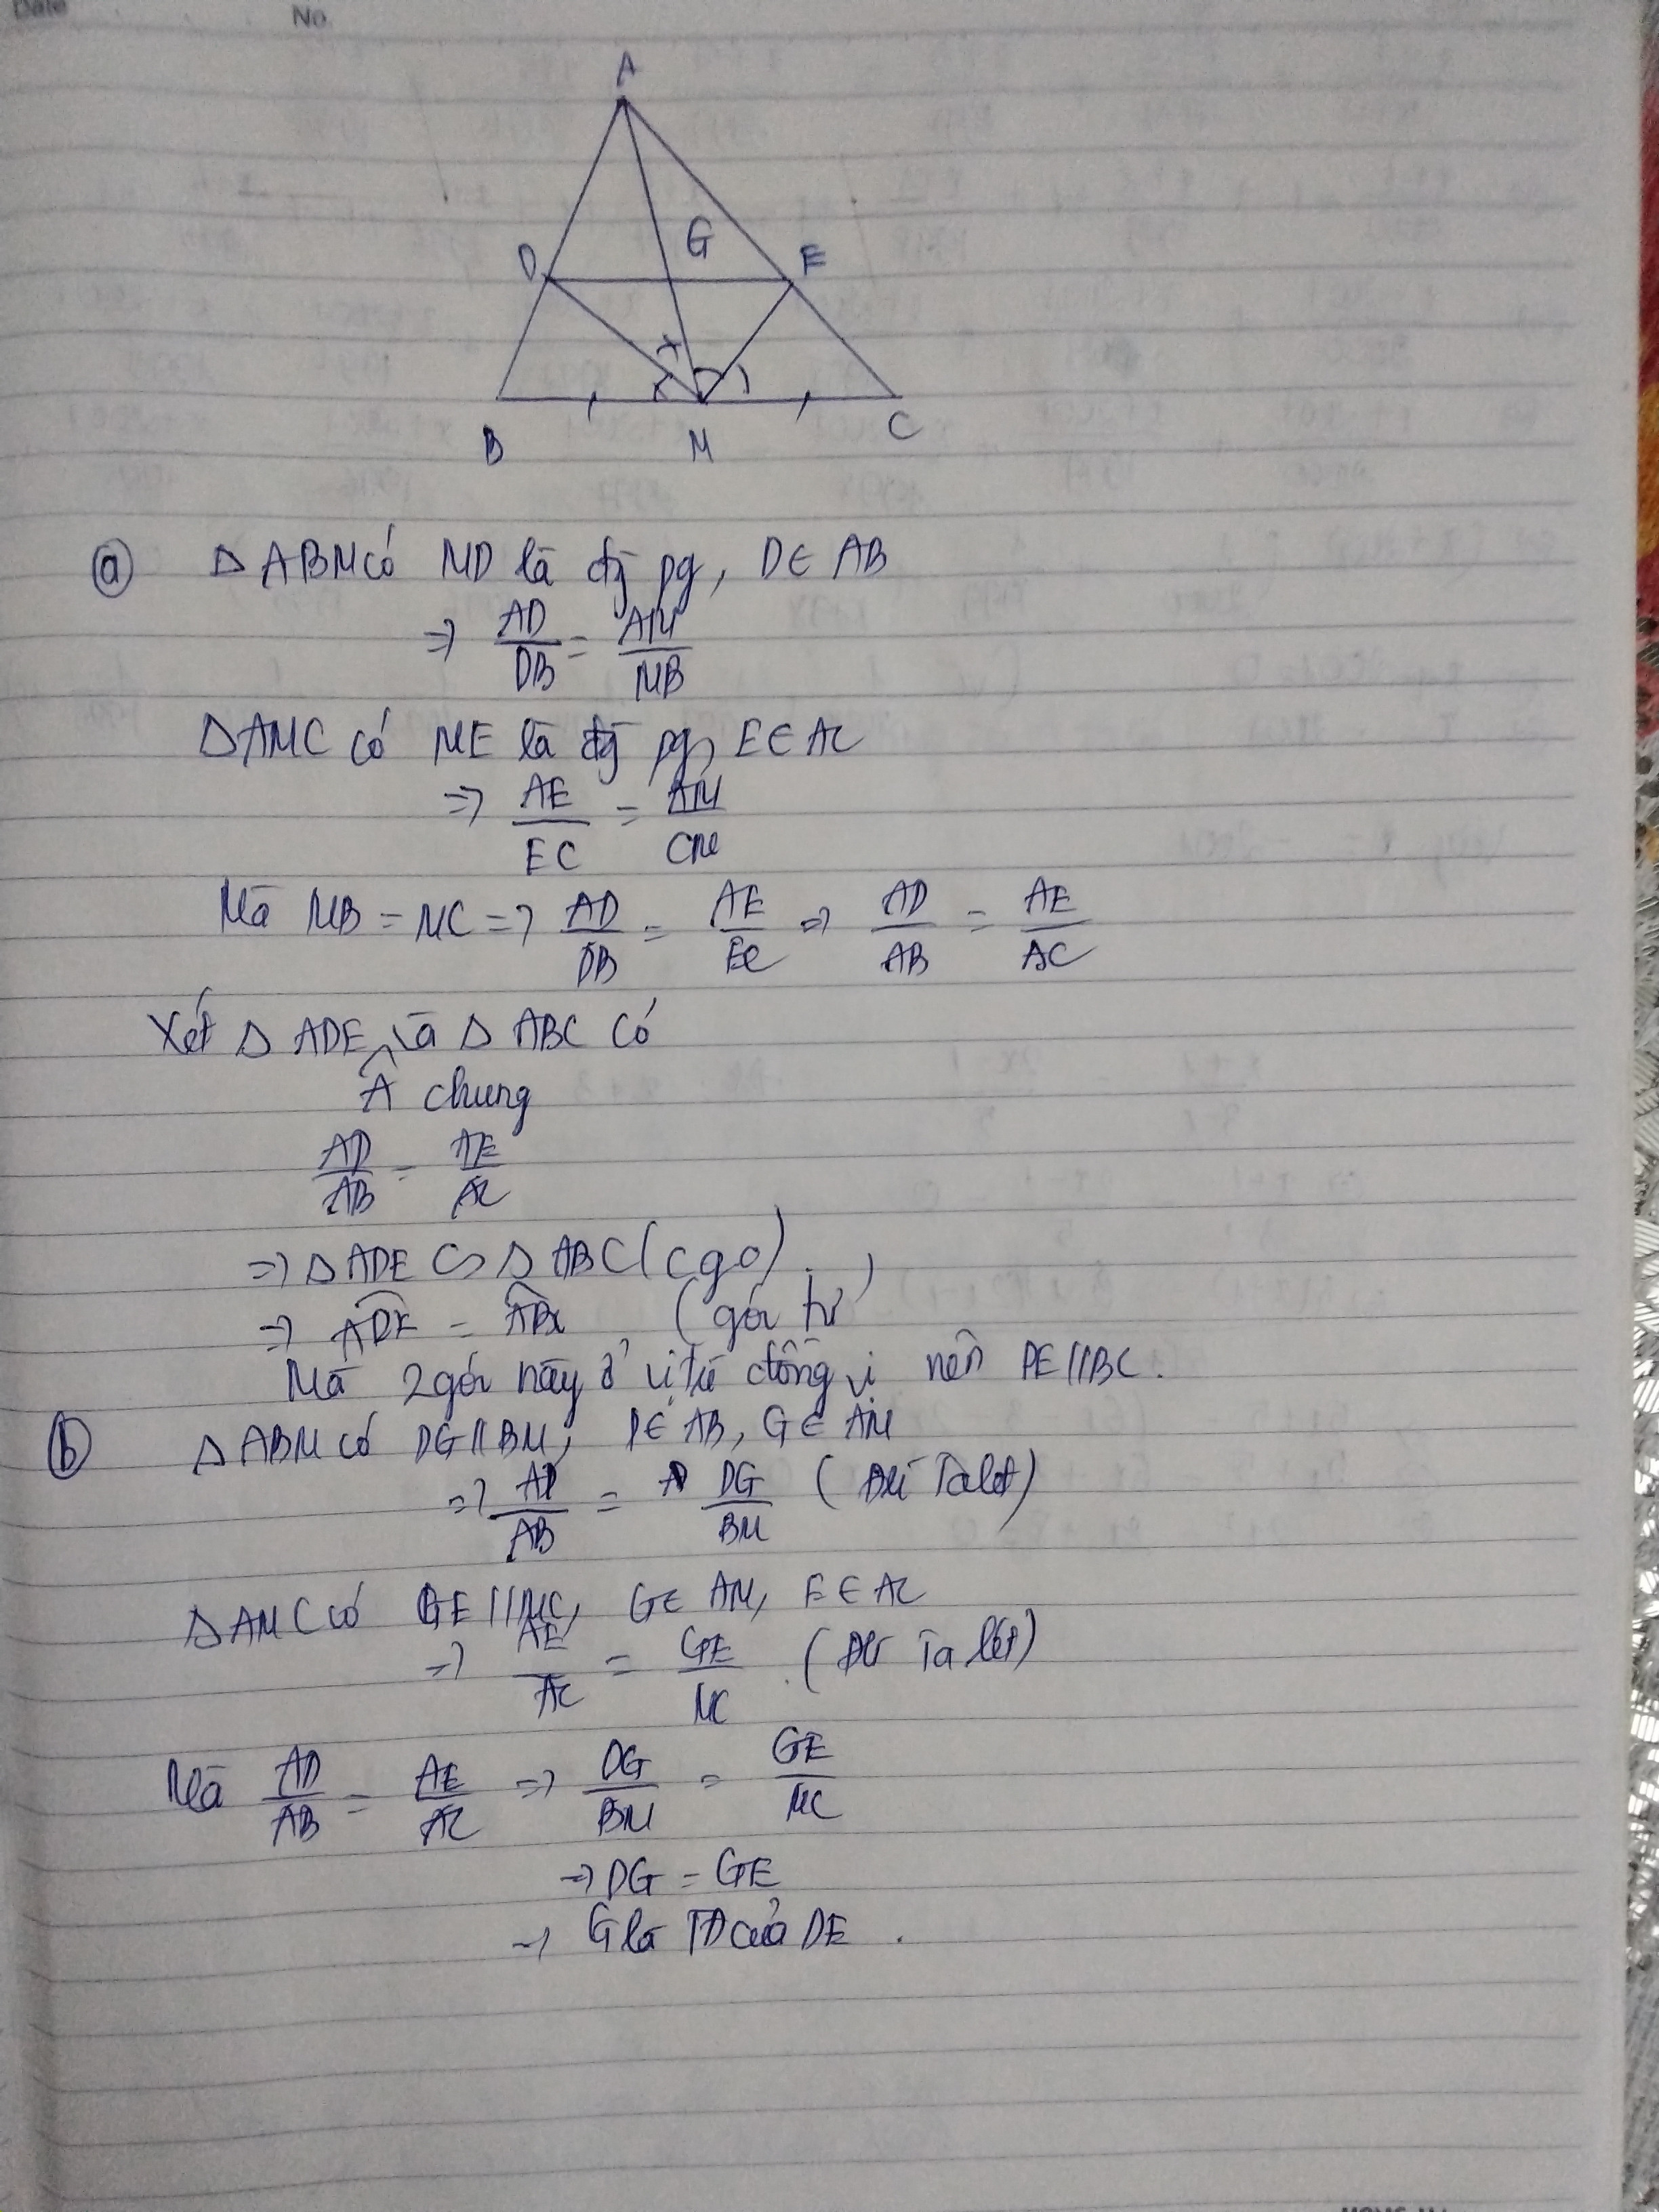 Date
No
A
G
D
E
B
M
C
a) Δ ABM có MD là đg pg, D∈ AB
=> AD/DB = AM/MB
Δ AMC có ME là đg pg, E∈ AC
=> AE/EC = AM/CM
Mà MB = MC => AD/DB = AE/EC => AD/AB = AE/AC
Xét Δ ADE và Δ ABC Có
Â chung
AD/AB = AE/AC
=> Δ ADE ∽ Δ ABC (cgc)
=> ADE = ABC (góc tư)
Mà 2 góc này ở vị trí đồng vị nên DE//BC.
b) Δ ABM có DG//BM, D∈ AB, G∈ AM
=> AD/AB = DG/BM ( Talet)
Δ AMC có GE//MC, G∈ AM, E∈ AC
=> AE/AC = GE/MC ( Ta lét)
Mà AD/AB = AE/AC => DG/BM = GE/MC
=> DG = GE
=> G là TĐ của DE.